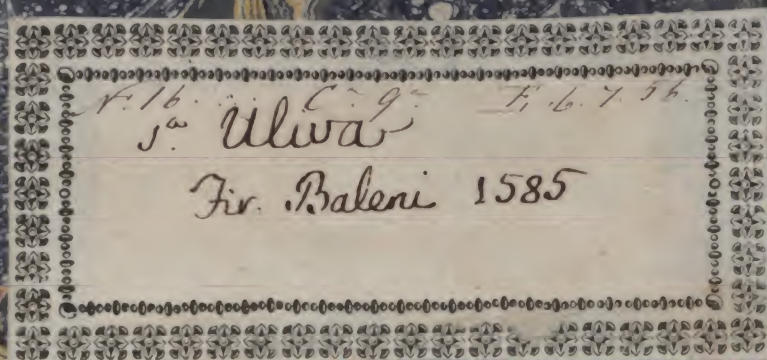 N. 16. C.ª 9.ª F. 6. 7. 56.
S.ª Uliva
Fir. Baleni 1585